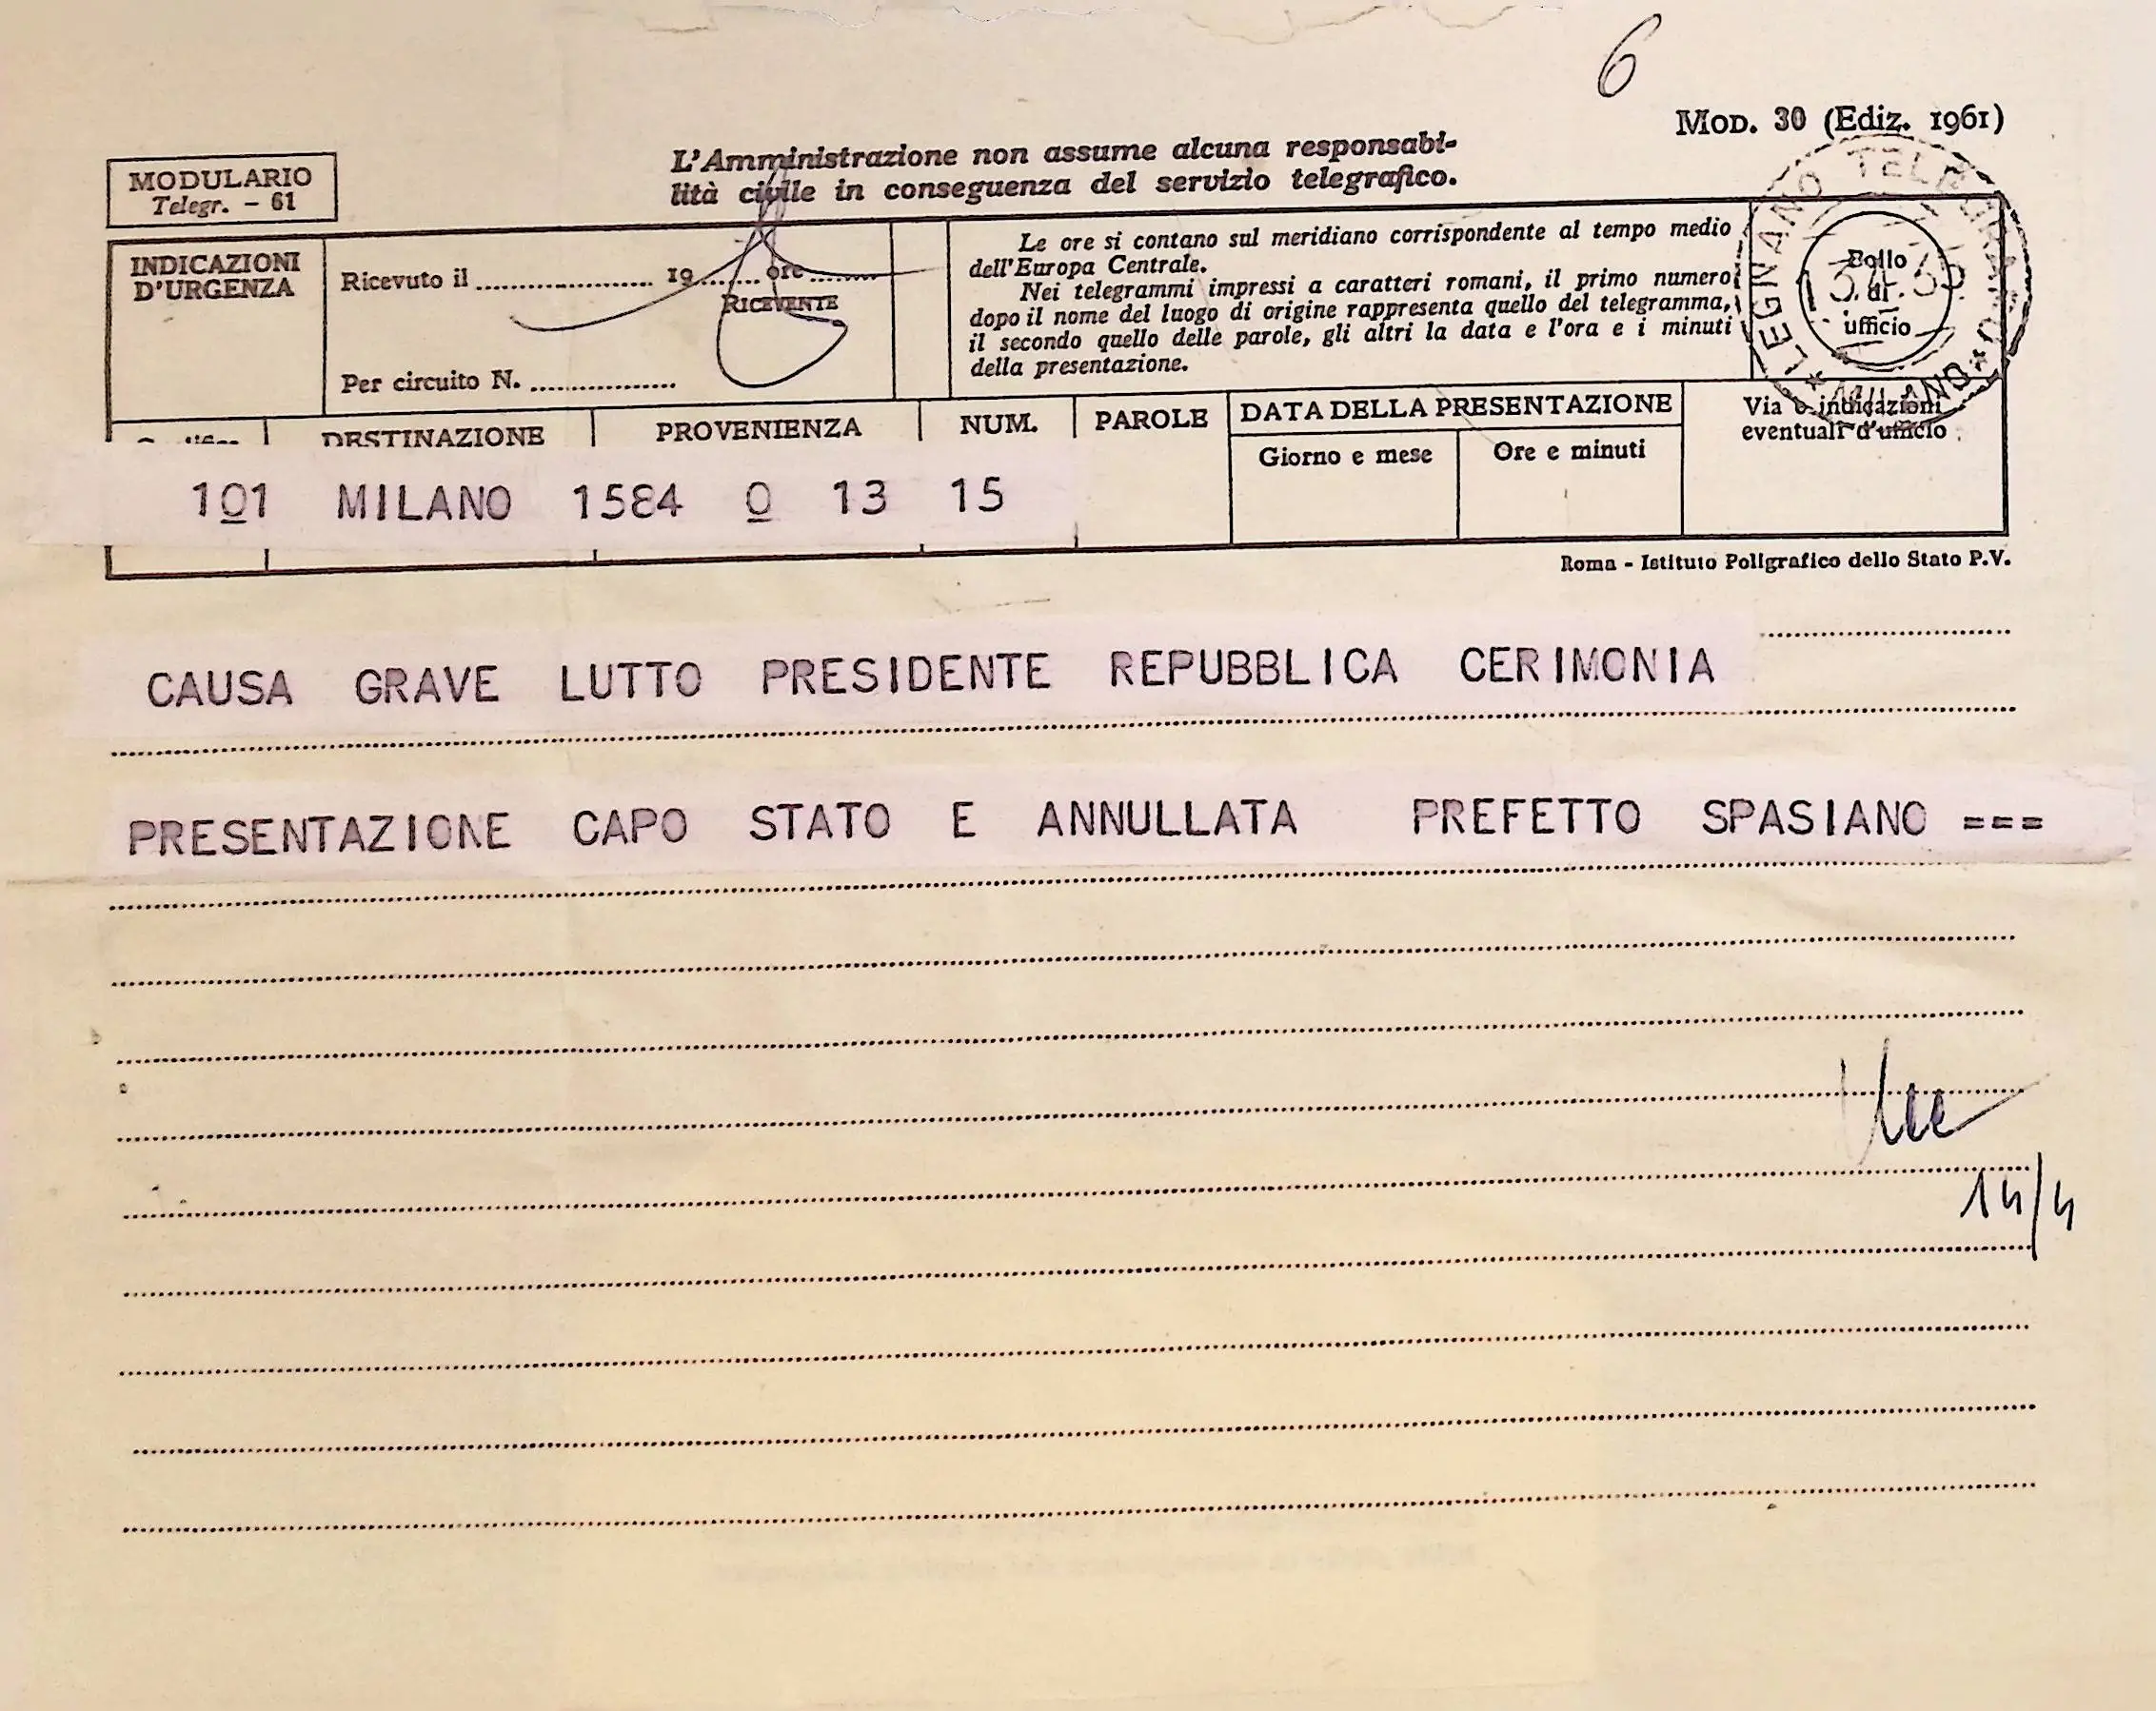 6
MOD. 30 (Ediz. 1961)
MODULARIO
Telegr. - 61
L'Amministrazione non assume alcuna responsabi-
lità civile in conseguenza del servizio telegrafico.
INDICAZIONI
D'URGENZA
Ricevuto il ........................ 19........ ore ..........
RICEVENTE
Per circuito N. ..................
Le ore si contano sul meridiano corrispondente al tempo medio
dell'Europa Centrale.
Nei telegrammi impressi a caratteri romani, il primo numero
dopo il nome del luogo di origine rappresenta quello del telegramma,
il secondo quello delle parole, gli altri la data e l'ora e i minuti
della presentazione.
Bollo
di
ufficio
LEGNANO
MILANO
DESTINAZIONE
PROVENIENZA
NUM.
PAROLE
DATA DELLA PRESENTAZIONE
Giorno e mese
Ore e minuti
Via o indicazioni
eventuali d'ufficio
101 MILANO 1584 0 13 15
Roma - Istituto Poligrafico dello Stato P.V.
CAUSA GRAVE LUTTO PRESIDENTE REPUBBLICA CERIMONIA
PRESENTAZIONE CAPO STATO E ANNULLATA PREFETTO SPASIANO ===
14/4